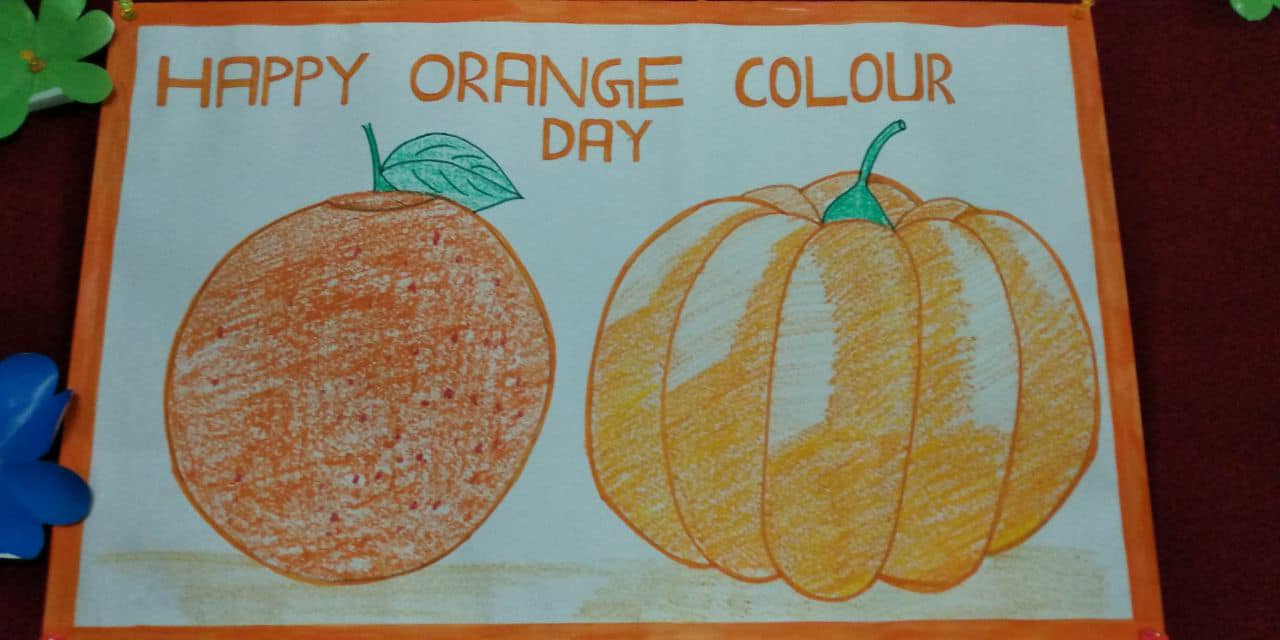 HAPPY ORANGE COLOUR
DAY